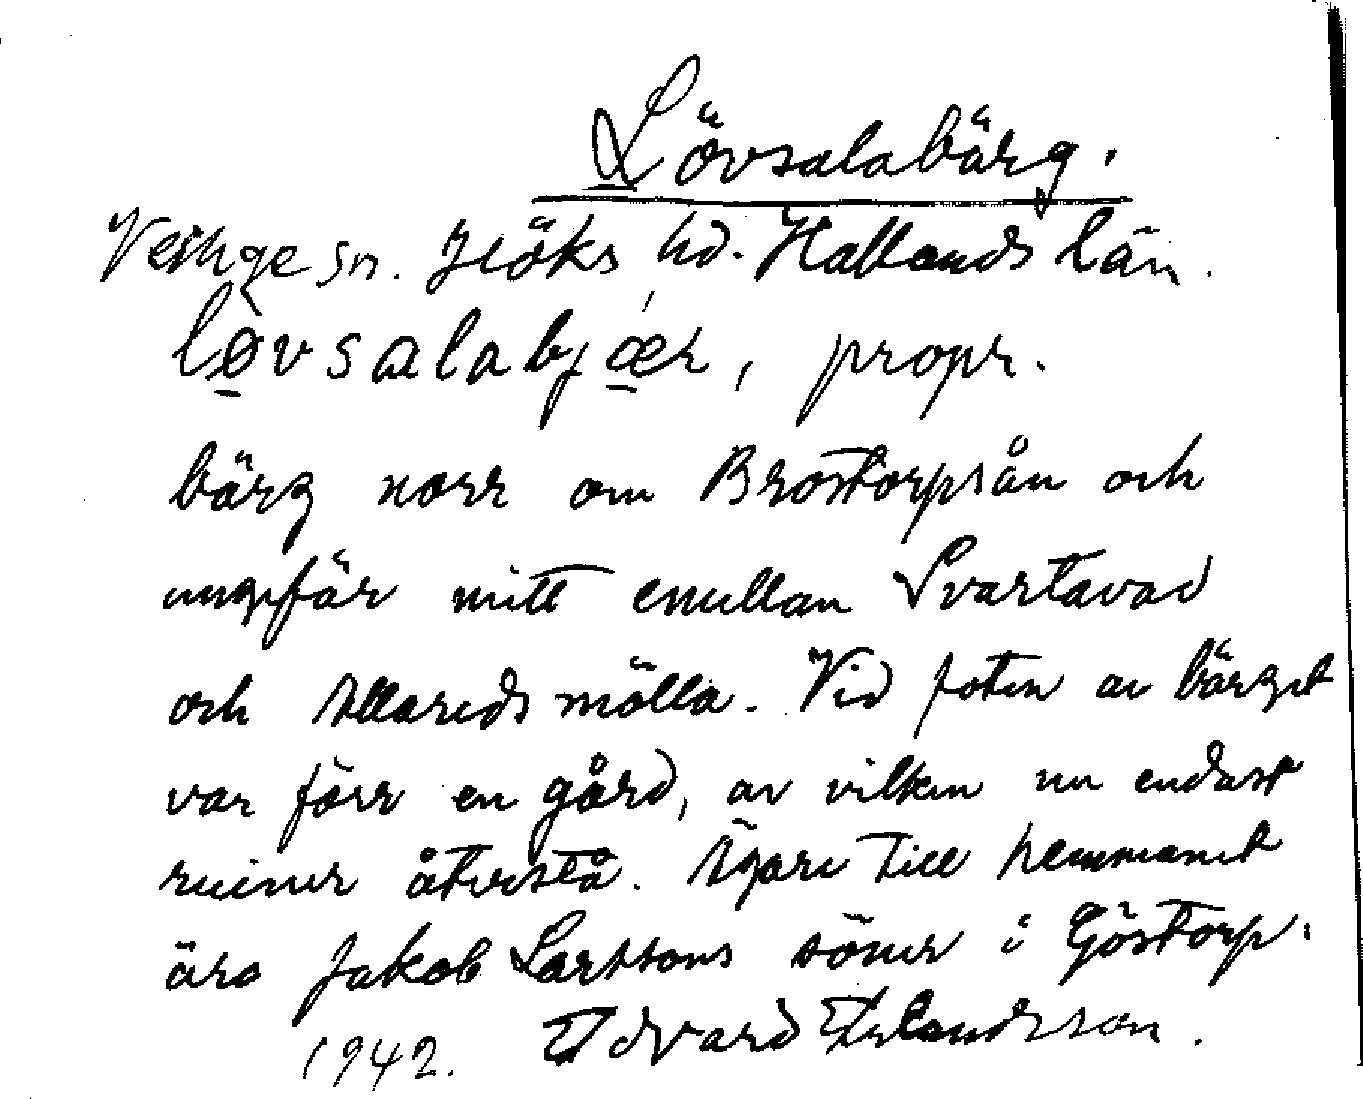 Lövsalabärg.
Veinge sn. Höks hd. Hallands län.
løvsalabjær, propr.
bärg norr om Brostorpsån och
ungefär mitt emellan Svartavad
och Allareds mölla. Vid foten av bärget
var förr en gård, av vilken nu endast
ruiner återstå. Ägare till hemmanet
äro Jakob Larssons söner i Göstorp.
1942. Edvard Erlandsson.